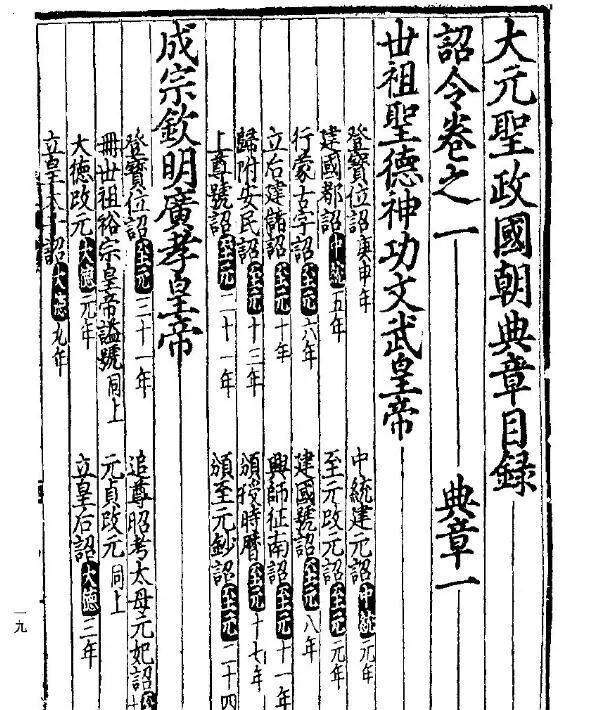 大元聖政國朝典章目録
詔令卷之一 典章一
世祖聖德神功文武皇帝
登寶位詔庚申年 中統建元詔中統元年
建國都詔中統五年 至元改元詔至元元年
行蒙古字詔至元六年 建國號詔至元八年
立后建儲詔至元十年 興師征南詔至元十一年
歸附安民詔至元十三年 頒授時曆至元十七年
上尊號詔至元二十一年 頒至元鈔詔至元二十四
成宗欽明廣孝皇帝
登寶位詔至元三十一年 追尊昭考太母元妃詔至
冊世祖裕宗皇帝謚號同上 元貞改元同上
大德改元大德元年 立皇后詔大德三年
立皇太子詔大德九年
一九